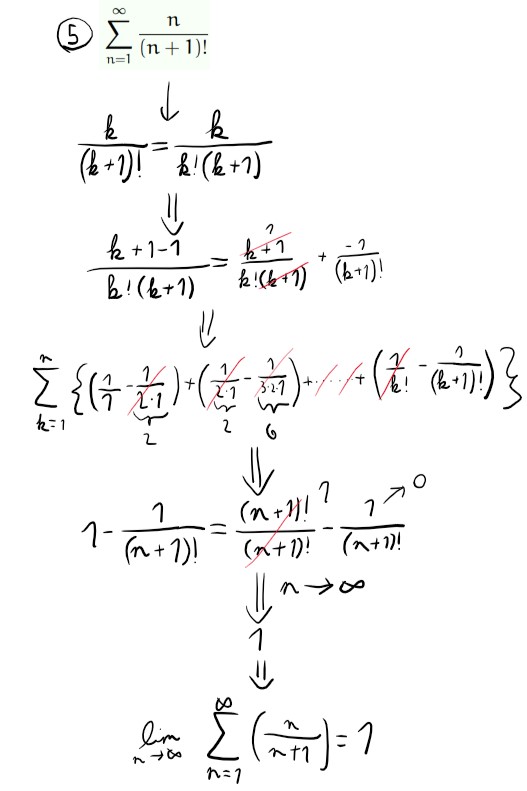 ⑤ ∑_{n=1}^{∞} n/(n + 1)!
↓
k/(k+1)! = k/(k!(k+1))
⇓
(k+1-1)/(k!(k+1)) = (k+1)/(k!(k+1)) 1 + -1/(k+1)!
⇓
∑_{k=1}^{n} {(1/1 - 1/(2·1)) + (1/(2·1) - 1/(3·2·1)) + ······ + (1/k! - 1/(k+1)!)}
2 2 6
⇓
1 - 1/(n+1)! = (n+1)!/(n+1)! 1 - 1/(n+1)! → 0
⇓ n → ∞
1
⇓
lim_{n→∞} ∑_{n=1}^{∞} (n/(n+1)) = 1